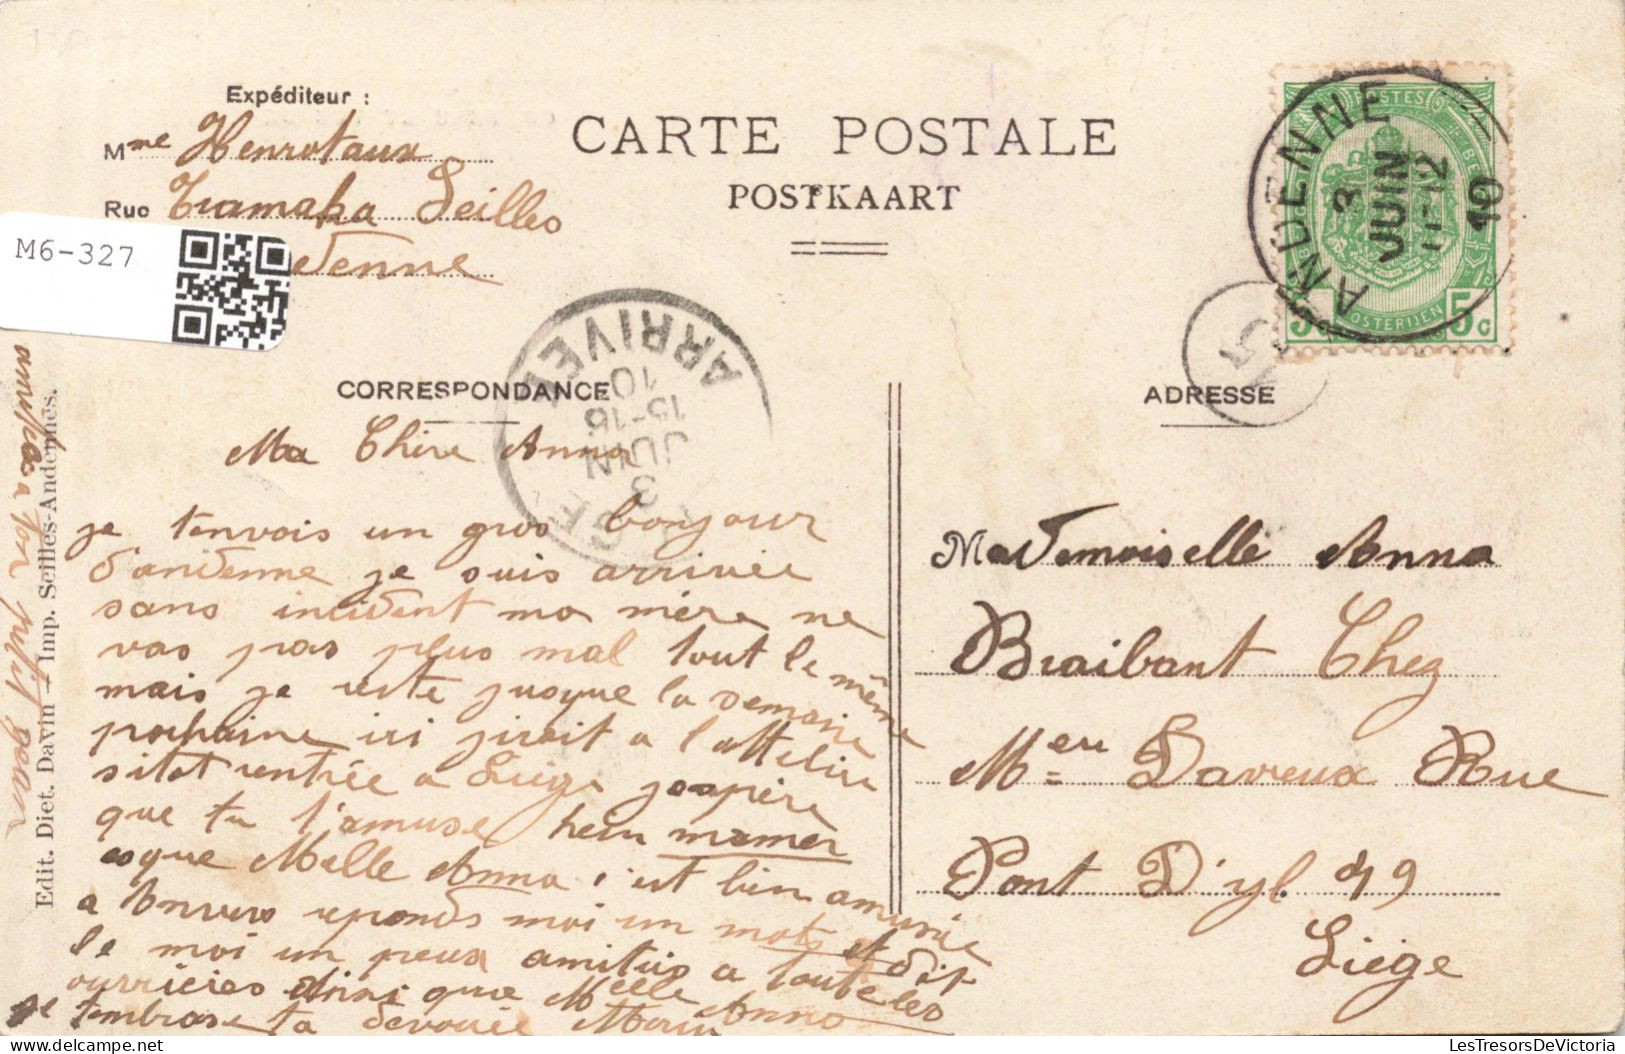 Expéditeur :
Mme Henrotaux
Rue Tramaka Seilles
denne
M6-327
CARTE POSTALE
POSTKAART
ANDENNE
3
JUIN
11-12
10
POSTES
POSTERIJEN
5 5c
5
ARRIVEE
10
15-16
JUIN
3
CORRESPONDANCE
ADRESSE
Ma Chire Anna
je tenvois un gros bonjour
d'andenne je suis arrivée
sans incident ma mère ne
vas pas plus mal tout le même
mais je reste jusque la semaine
prochaine ici jirait a l'attelier
sitot rentrée a Liége jespère
que tu t'amuse hein mamer
esque Melle Anna s'est bien amusée
a Anvers reponds moi un mots et dit
le moi un peux amitiés a toute les
ouvriéres ainsi que Melle Anna
je tembrasse ta devouée Maria
amitiés a ton petit jean
Edit. Diet. Davin — Imp. Seilles-Andennes.
Mademoiselle Anna
Braibant Chez
Meur Davreux Rue
Pont D'yl. 49
Liége
LesTresorsDeVictoria
delcampe.net